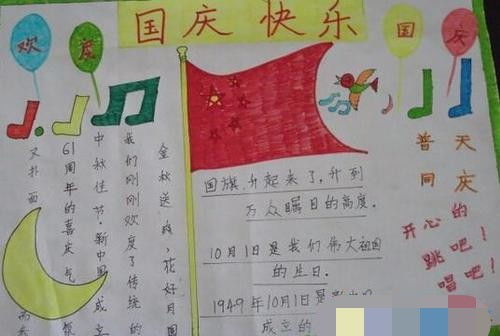 国庆快乐
欢度
国庆
金秋送爽，花好月
我们刚刚欢度了传统的
中秋佳节，新中国成立
61周年的喜庆气
又扑面而
国旗升起来了，升到
万众瞩目的高度。
10月1日是我们伟大祖国
的生日。
1949年10月1日是
成立的
普天
同庆
开心的
跳吧！
唱吧！